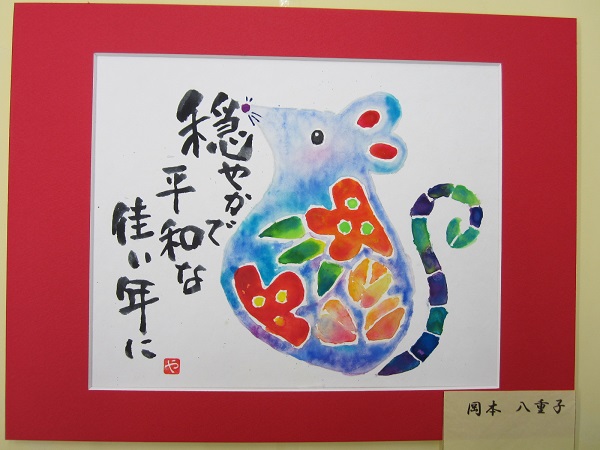 穏やかで
平和な
佳い年に
や
岡本 八重子